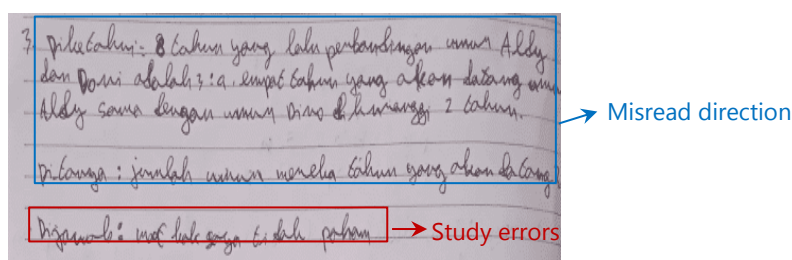 3. Diketahui: 8 tahun yang lalu perbandingan umur Aldy
dan Doni adalah 3:a. empat tahun yang akan datang umur
Aldy sama dengan umur Dino dikurangi 2 tahun.
Misread direction
Ditanya: jumlah umur mereka tahun yang akan datang
Dijawab: maf kak saya tidak paham
Study errors